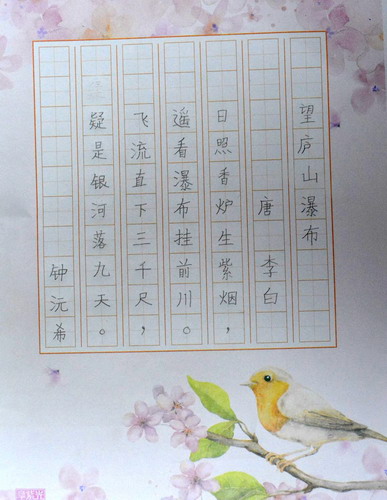 望庐山瀑布
唐 李白
日照香炉生紫烟，
遥看瀑布挂前川。
飞流直下三千尺，
疑是银河落九天。
钟沅希